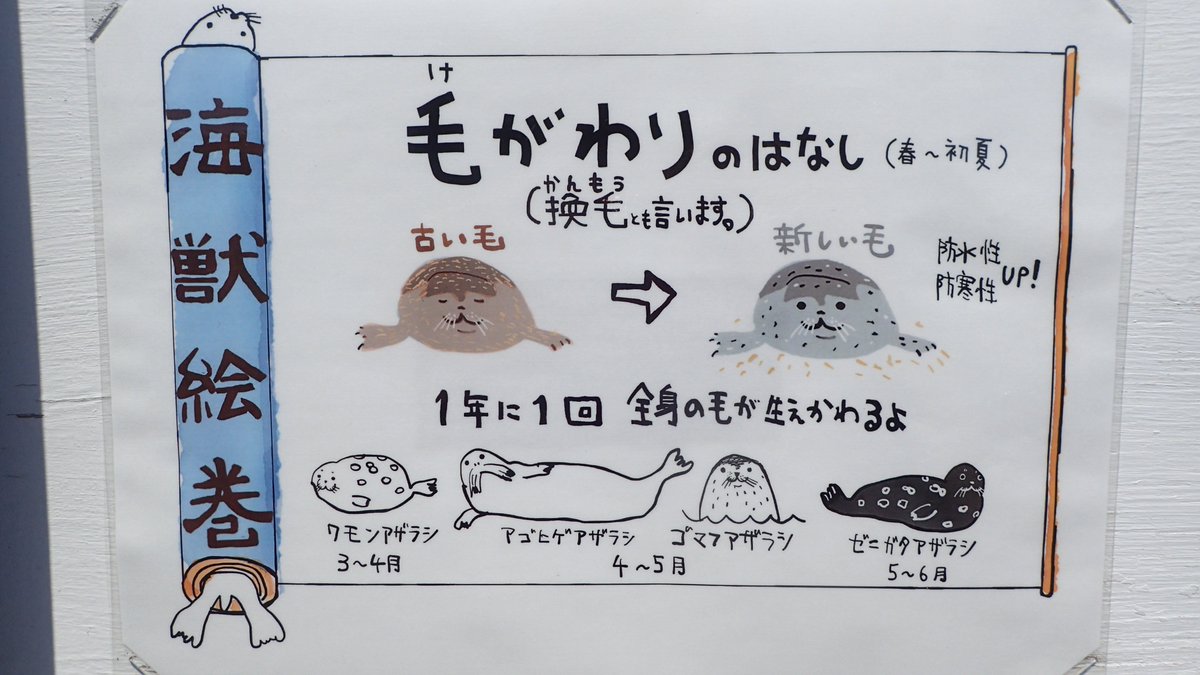 海獣絵巻
け
毛がわりのはなし(春〜初夏)
かんもう
(換毛とも言います。)
古い毛
新しい毛
防水性
防寒性
UP!
1年に1回 全身の毛が生えかわるよ
ワモンアザラシ
3〜4月
アゴヒゲアザラシ
ゴマフアザラシ
4〜5月
ゼニガタアザラシ
5〜6月